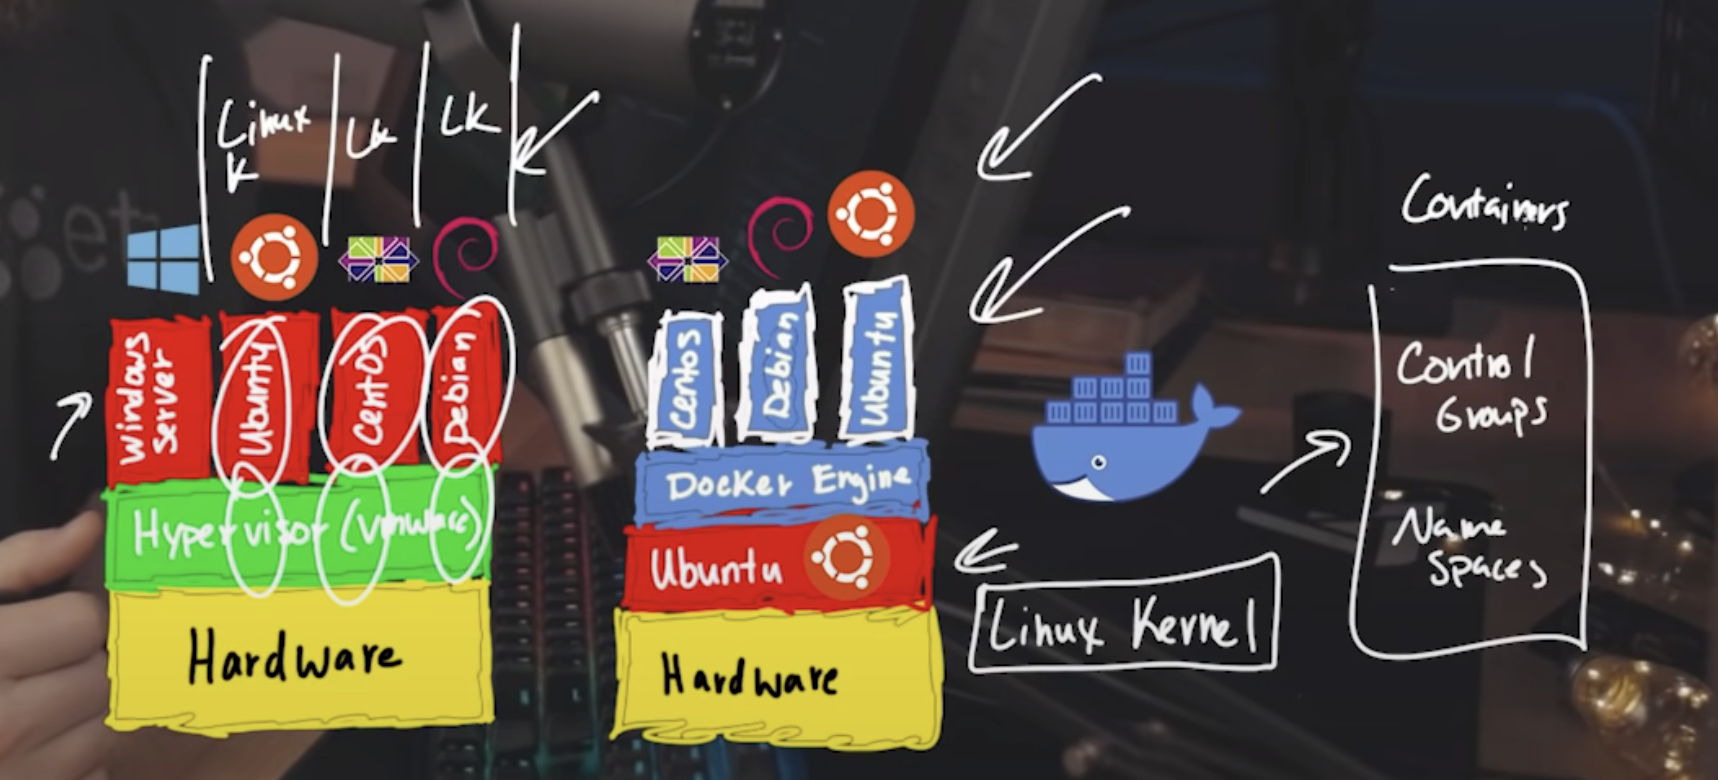 Linux
K
LK
LK
Windows
Server
Ubuntu
CentOS
Debian
Hypervisor (vmware)
Hardware
Centos
Debian
Ubuntu
Docker Engine
Ubuntu
Hardware
Linux Kernel
Containers
Control
Groups
Name
Spaces